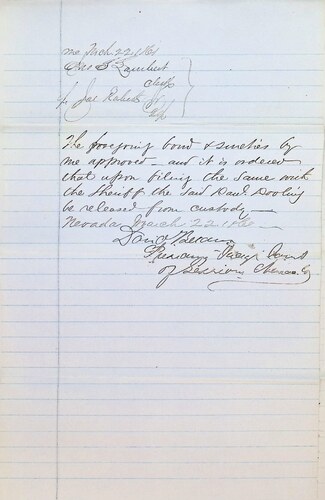 me Mch 22 1861
Lambert
Clerk
by Jas Roberts Jr
The foregoing bond & sureties by
me approved — and it is ordered
that upon filing the same with
the Sheriff the said Paul Dooling
be released from custody —
Nevada March 22 1861
David Belden
Presiding Judge Court
of Sessions Nevada Co